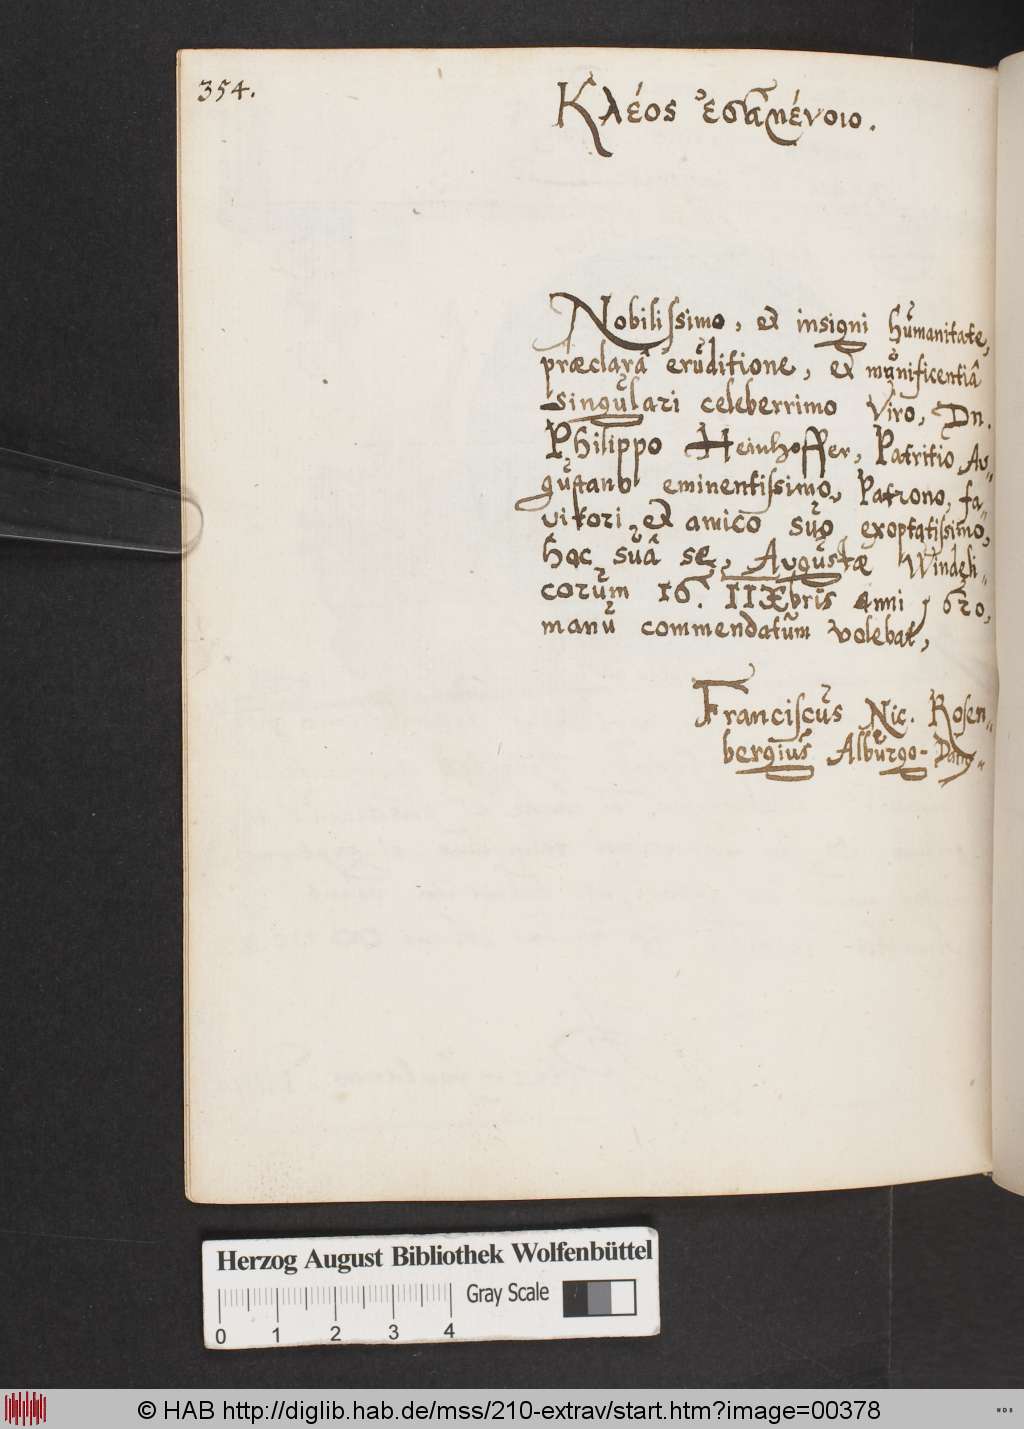 354.
Κλέος ἐσαμένοιο.
Nobilissimo, et insigni humanitate,
præclarâ eruditione, et munificentiâ
singulari celeberrimo Viro, Dn.
Philippo Heinhoffer, Patritio Au-
gustano eminentissimo, Patrono, fa-
vitori, et amico suo exoptatissimo,
hoc suâ se, Augustæ Windeli-
corum 16. IIXbris anni 1620,
manu commendatum volebat,
Franciscus Nic. Rosen-
bergius Alburgo-
Herzog August Bibliothek Wolfenbüttel
Gray Scale
0 1 2 3 4
© HAB http://diglib.hab.de/mss/210-extrav/start.htm?image=00378